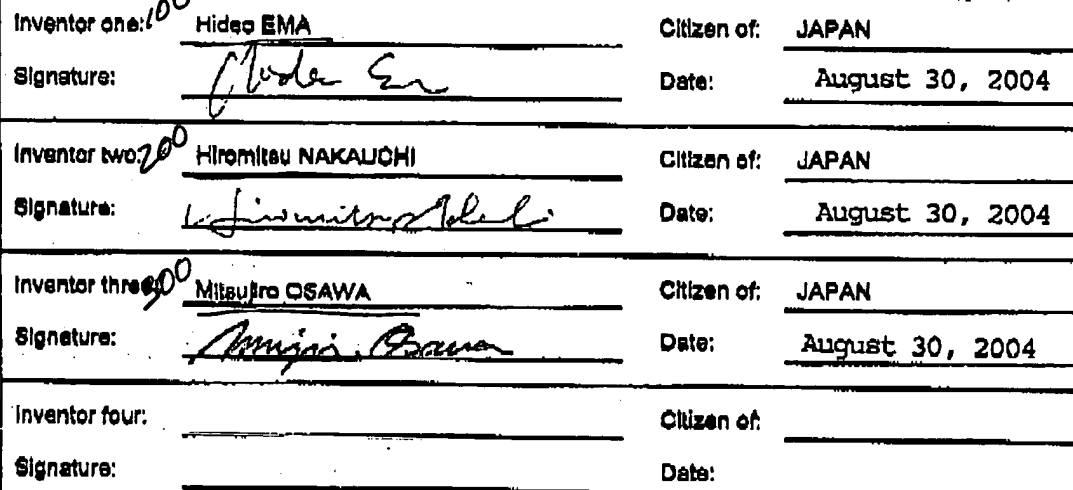 Inventor one: 100 Hideo EMA Citizen of: JAPAN
Signature: Hideo Em Date: August 30, 2004
Inventor two: 200 Hiromitsu NAKAUCHI Citizen of: JAPAN
Signature: Hiromitsu Date: August 30, 2004
Inventor three: 300 Mitsujiro OSAWA Citizen of: JAPAN
Signature: Osawa Date: August 30, 2004
Inventor four: Citizen of:
Signature: Date: